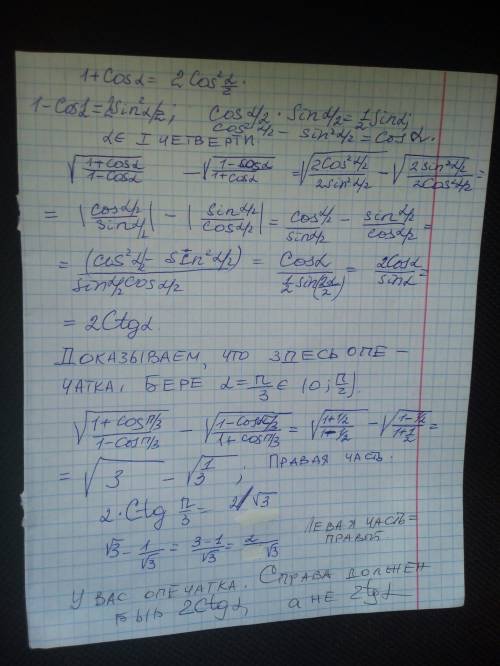 1+Cosα = 2Cos²α/2.
1-Cosα=2Sin²α/2; Cosα/2 · Sinα/2=1/2 Sinα;
Cos²α/2 - sin²α/2 = Cosα.
α∈ I ЧЕТВЕРТИ
√((1+cosα)/(1-cosα)) - √((1-cosα)/(1+cosα)) = √((2Cos²α/2)/(2sin²α/2)) - √((2Sin²α/2)/(2Cos²α/2)) =
= |(cosα/2)/(sinα/2)| - |(sinα/2)/(cosα/2)| = (cosα/2)/(sinα/2) - (sinα/2)/(cosα/2) =
= (cos²α/2 - sin²α/2)/(sinα/2 cosα/2) = Cosα/(1/2 sin(2α/2)) = 2Cosα/sinα =
= 2Ctgα
ДОКАЗЫВАЕМ, ЧТО ЗДЕСЬ ОПЕ-
ЧАТКА, БЕРЕ α=π/3 ∈ (0; π/2).
√((1+cosπ/3)/(1-cosπ/3)) - √((1-cosπ/3)/(1+cosπ/3)) = √((1+1/2)/(1-1/2)) - √((1-1/2)/(1+1/2)) =
= √3 - √(1/3); ПРАВАЯ ЧАСТЬ.
2·Ctg π/3 = 2/√3
√3 - 1/√3 = (3-1)/√3 = 2/√3 ЛЕВАЯ ЧАСТЬ=
ПРАВОЙ
У ВАС ОПЕЧАТКА. СПРАВА ДОЛЖЕН
БЫТЬ 2Ctgα, а НЕ 2tgα